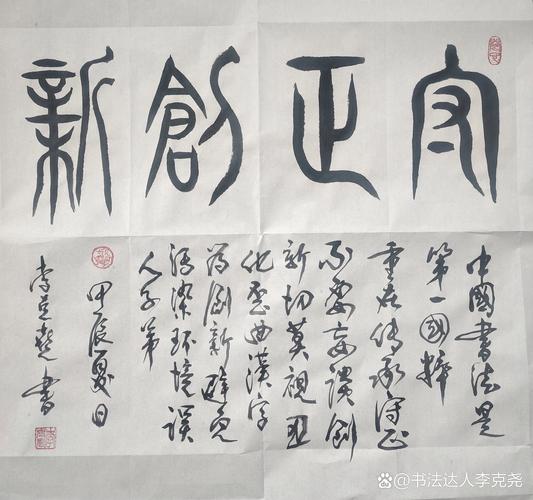 守正創新
中國書法是
第一國粹
重在傳承守正
不要妄談創
新切莫視丑
化歪曲漢字
為創新避免
污染环境误
人子弟
甲辰夏日
李克堯書
书法达人李克尧